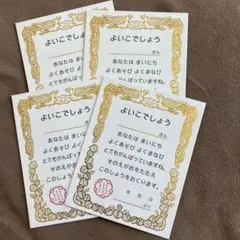 よいこでしょう
さん
あなたは まいにち
よくあそび よくまなび
とてもがんばっていますね。
よいこでしょう
さん
あなたは まいにち
よくあそび よくまなび
とてもがんばっていますね。
よいこでしょう
さん
あなたは まいにち
よくあそび よくまなび
とてもがんばっていますね。
そのえがおをたたえ
このしょうをおくります。
よいこでしょう
さん
あなたは まいにち
よくあそび よくまなび
とてもがんばっていますね。
そのえがおをたたえ
このしょうをおくります。
年 月 日
より